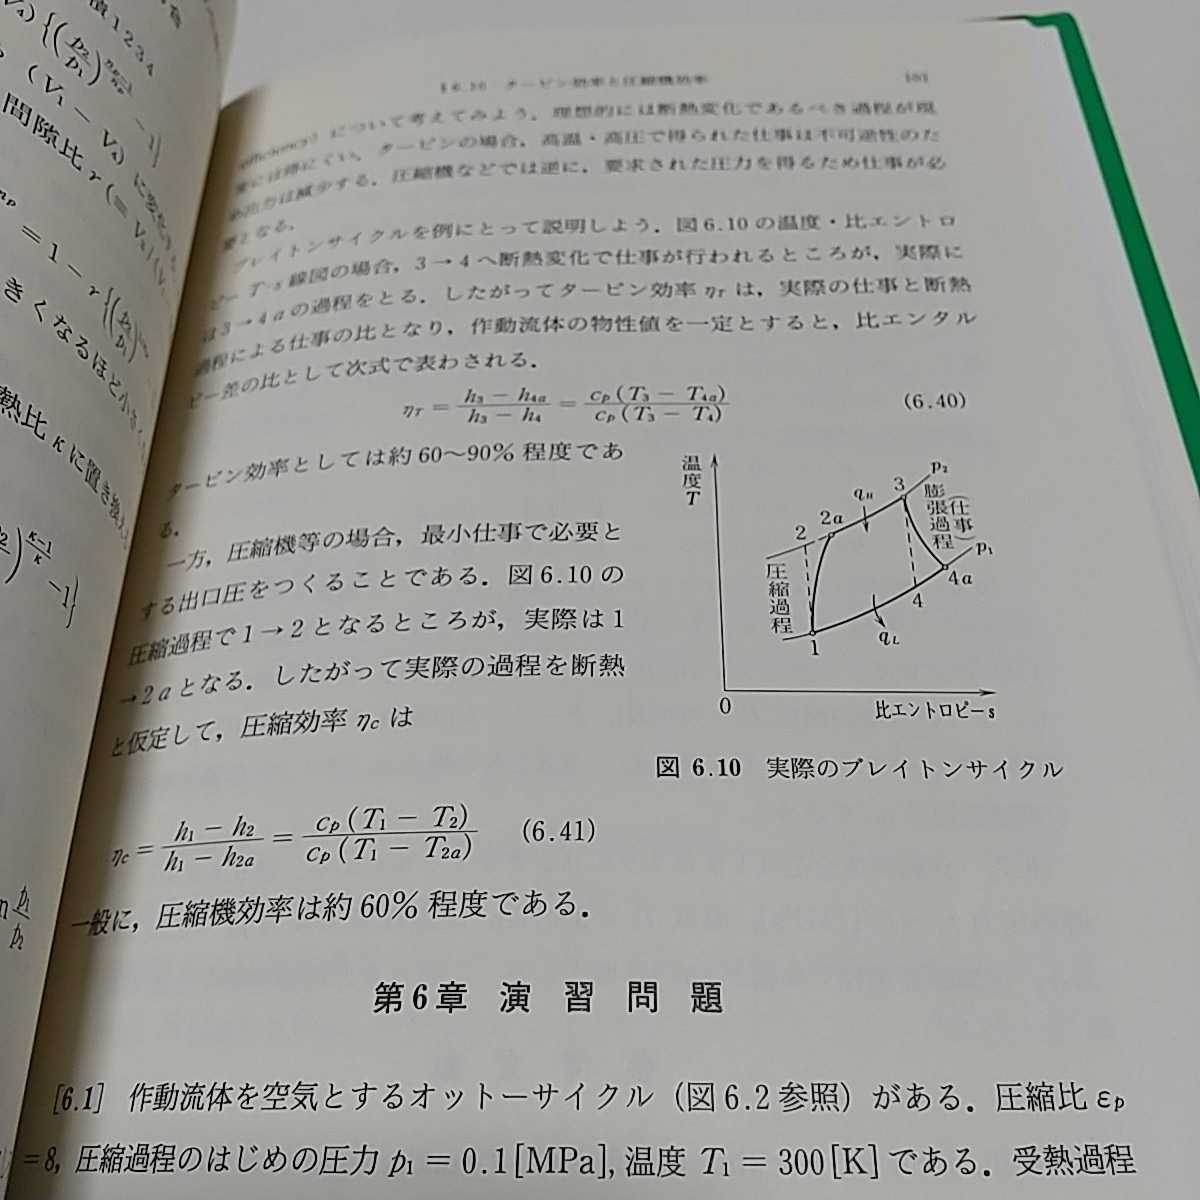 §6.10 タービン効率と圧縮機効率 101
efficiency) について考えてみよう．理想的には断熱変化であるべき過程が現
実には得にくい．タービンの場合，高温・高圧で得られた仕事は不可逆性のた
め出力は減少する．圧縮機などでは逆に，要求された圧力を得るため仕事が必
要となる．
ブレイトンサイクルを例にとって説明しよう．図6.10の温度・比エントロ
ピー T-s 線図の場合，3→4へ断熱変化で仕事が行われるところが，実際に
は3→4aの過程をとる．したがってタービン効率 ηT は，実際の仕事と断熱
過程による仕事の比となり，作動流体の物性値を一定とすると，比エンタル
ピー差の比として次式で表わされる．
ηT = (h3 − h4a)/(h3 − h4) = cp(T3 − T4a)/cp(T3 − T4) (6.40)
タービン効率としては約60〜90％程度であ
る．
一方，圧縮機等の場合，最小仕事で必要と
する出口圧をつくることである．図6.10の
圧縮過程で1→2となるところが，実際は1
→2aとなる．したがって実際の過程を断熱
と仮定して，圧縮効率 ηc は
温度 T
p2
3
qH
2a
2
膨張過程
(仕事)
p1
圧縮過程
4a
4
qL
1
0
比エントロピーs
図 6.10 実際のブレイトンサイクル
ηc = (h1 − h2)/(h1 − h2a) = cp(T1 − T2)/cp(T1 − T2a) (6.41)
一般に，圧縮機効率は約60％程度である．
第6章 演習問題
[6.1] 作動流体を空気とするオットーサイクル（図6.2参照）がある．圧縮比 εp
=8, 圧縮過程のはじめの圧力 p1 = 0.1[MPa], 温度 T1 = 300[K]である．受熱過程
1234
(V1 − V4) に変化
間隙比 r (=
= 1 −
きくなるほど小さく
熱比 κ に置き換え